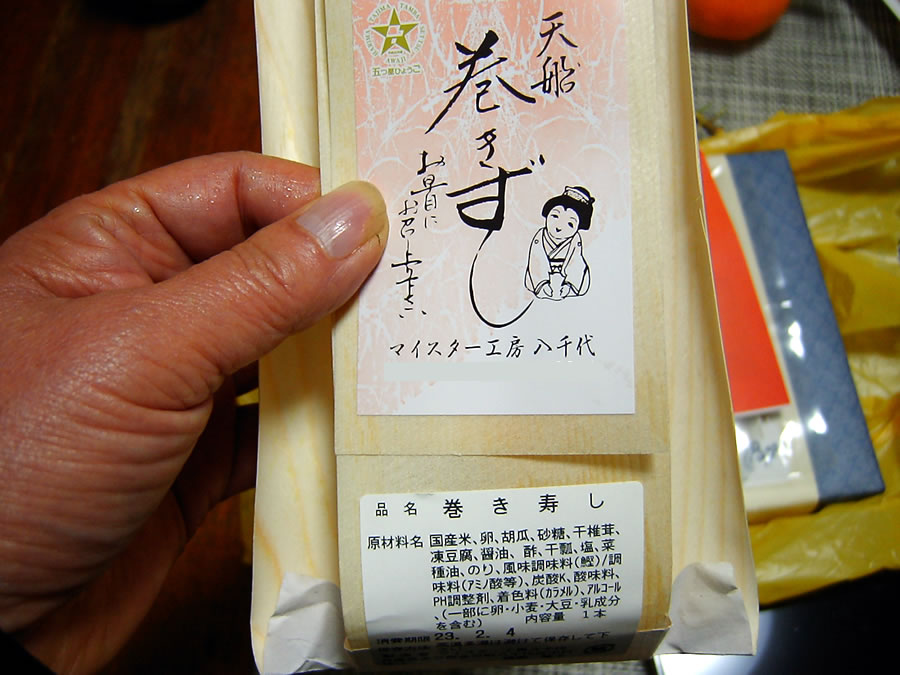 五つ星ひょうご
天船
巻きずし
お早目に
お召し上り下さい
マイスター工房 八千代
品名 巻き寿し
原材料名 国産米、卵、胡瓜、砂糖、干椎茸、
凍豆腐、醤油、酢、干瓢、塩、菜
種油、のり、風味調味料(鰹)/調
味料(アミノ酸等)、炭酸K、酸味料、
PH調整剤、着色料(カラメル)、アルコール
、(一部に卵・小麦・大豆・乳成分
を含む) 内容量 1本
消費期限 23. 2. 4